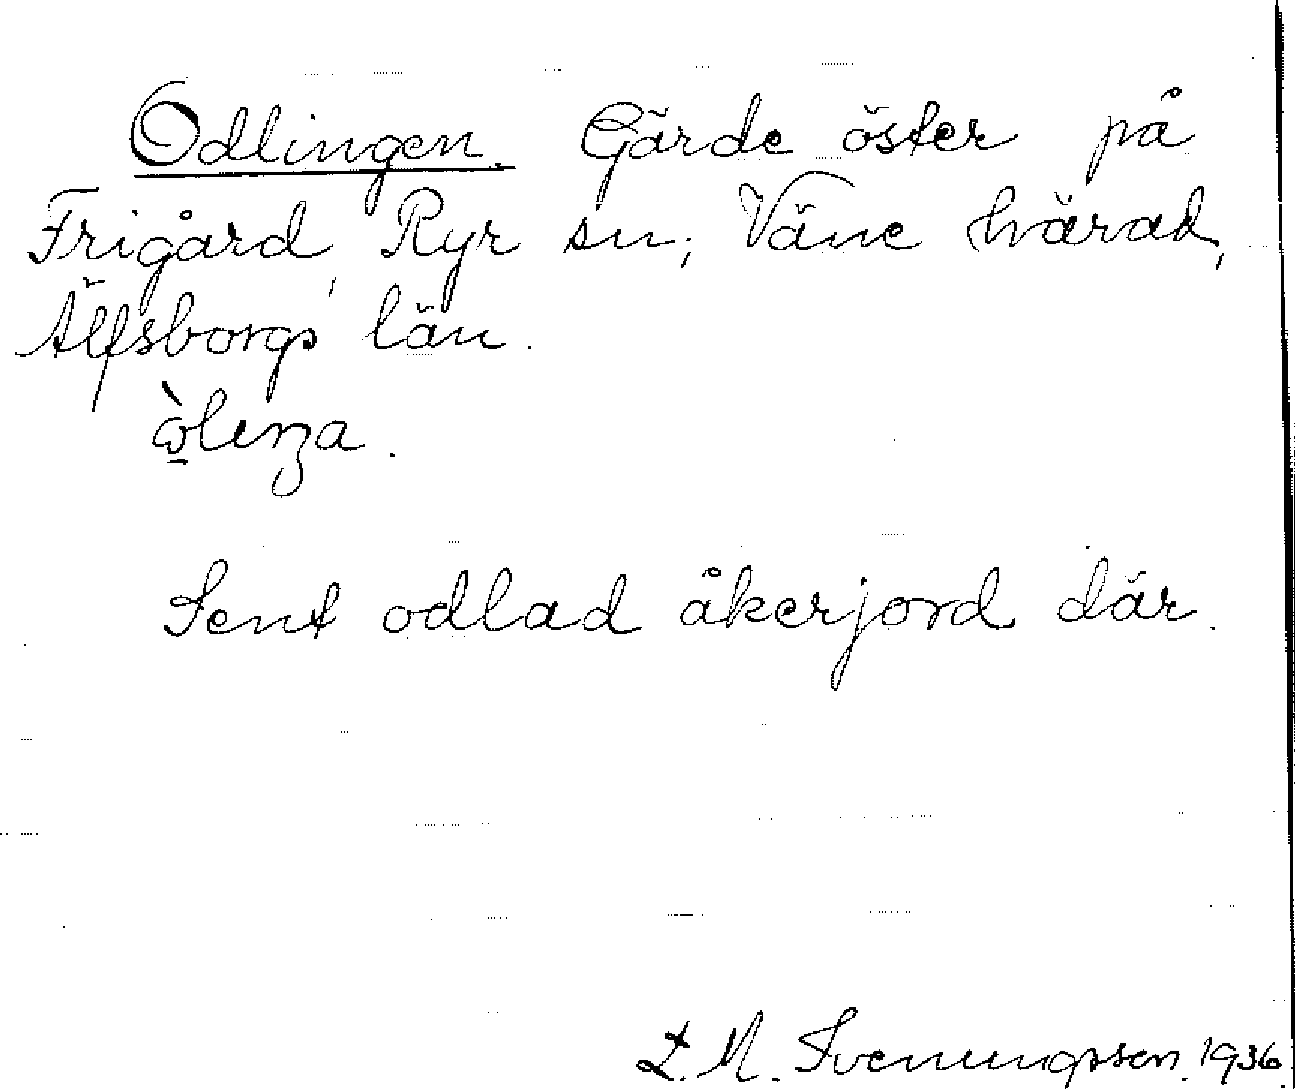 Odlingen. Gärde öster på
Frigård, Ryr sn, Väne härad,
Älfsborgs län.
Sent odlad åkerjord där.
L. M. Svenungsson. 1936.